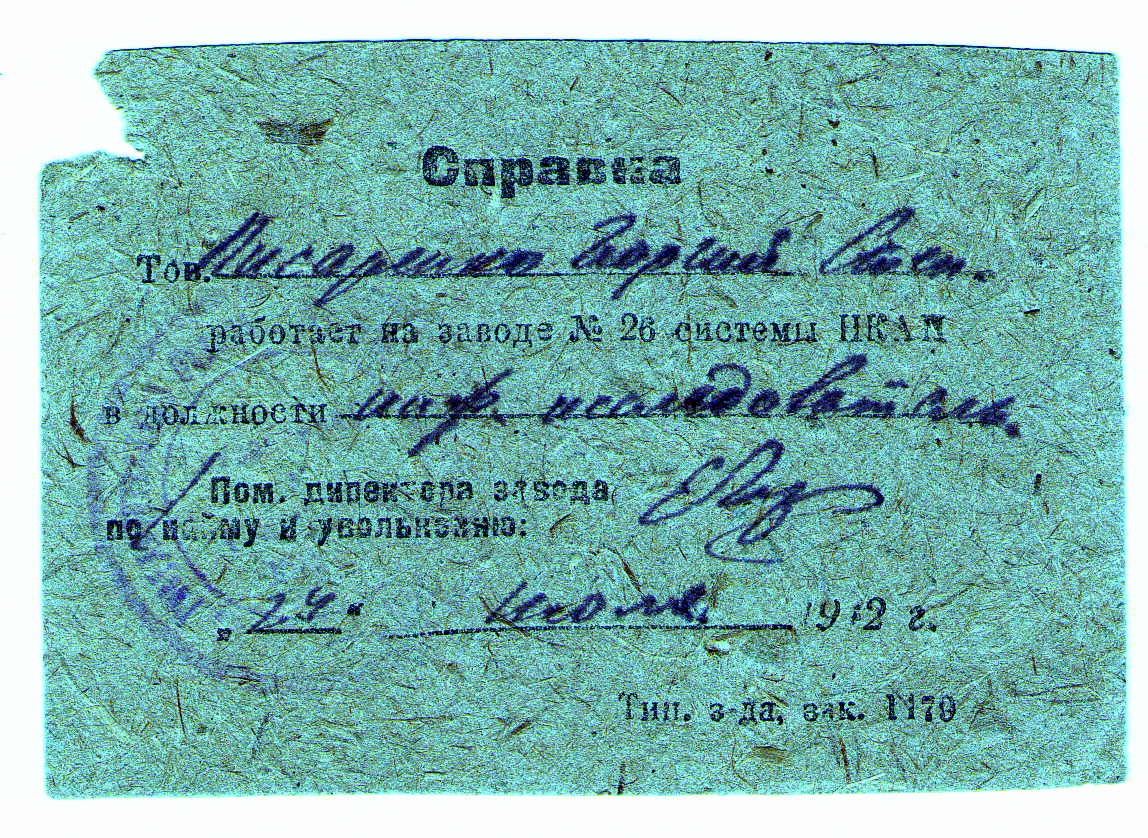 Справка
Тов. Писаренко Георгий Степ.
работает на заводе № 26 системы НКАП
в должности инж. исследователь
Пом. директора завода
по найму и увольнению:
„29“ июля 1942 г.
Тип. з-да, зак. 1179